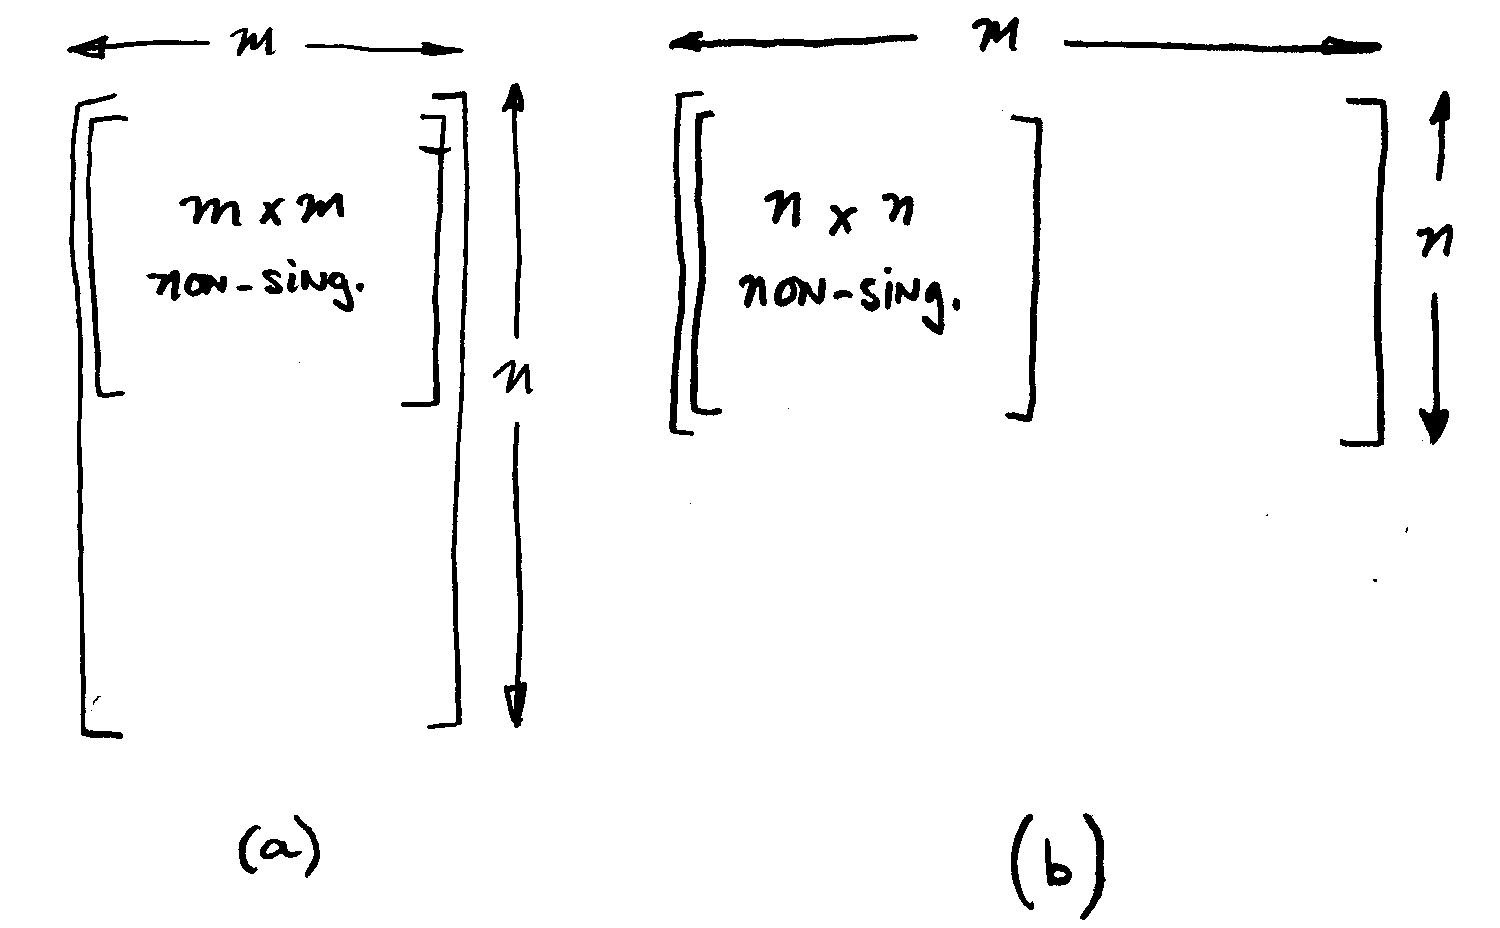 m
m × m
non-sing.
n
(a)
m
n × n
non-sing.
n
(b)